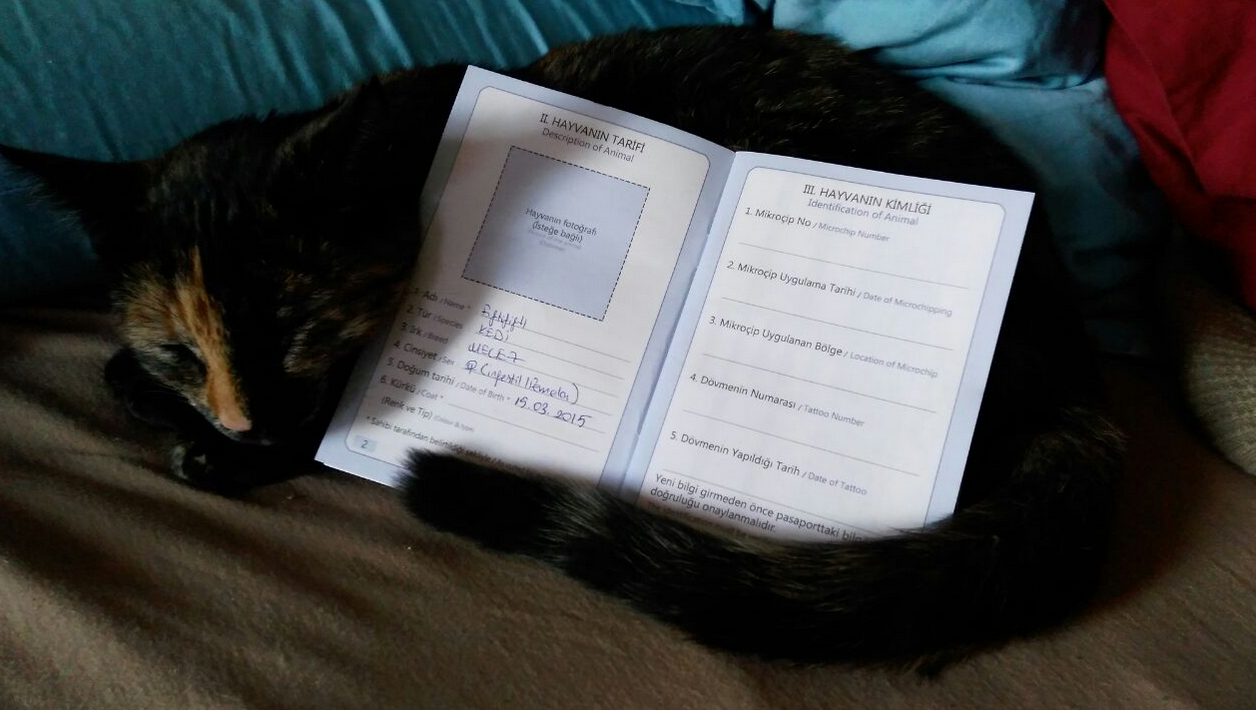 II. HAYVANIN TARİFİ
Description of Animal
Hayvanın fotoğrafı
(İsteğe bağlı)
1. Adı / Name *
2. Tür / Species KEDİ
3. Irk / Breed MELEZ
4. Cinsiyet / Sex
5. Doğum tarihi / Date of Birth * 15.03.2015
6. Kürkü / Coat *
(Renk ve Tip)
* Sahibi tarafından belirtildiği şekilde /
2
III. HAYVANIN KİMLİĞİ
Identification of Animal
1. Mikroçip No / Microchip Number
2. Mikroçip Uygulama Tarihi / Date of Microchipping
3. Mikroçip Uygulanan Bölge / Location of Microchip
4. Dövmenin Numarası / Tattoo Number
5. Dövmenin Yapıldığı Tarih / Date of Tattoo
Yeni bilgi girmeden önce pasaporttaki
doğruluğu onaylanmalıdır.